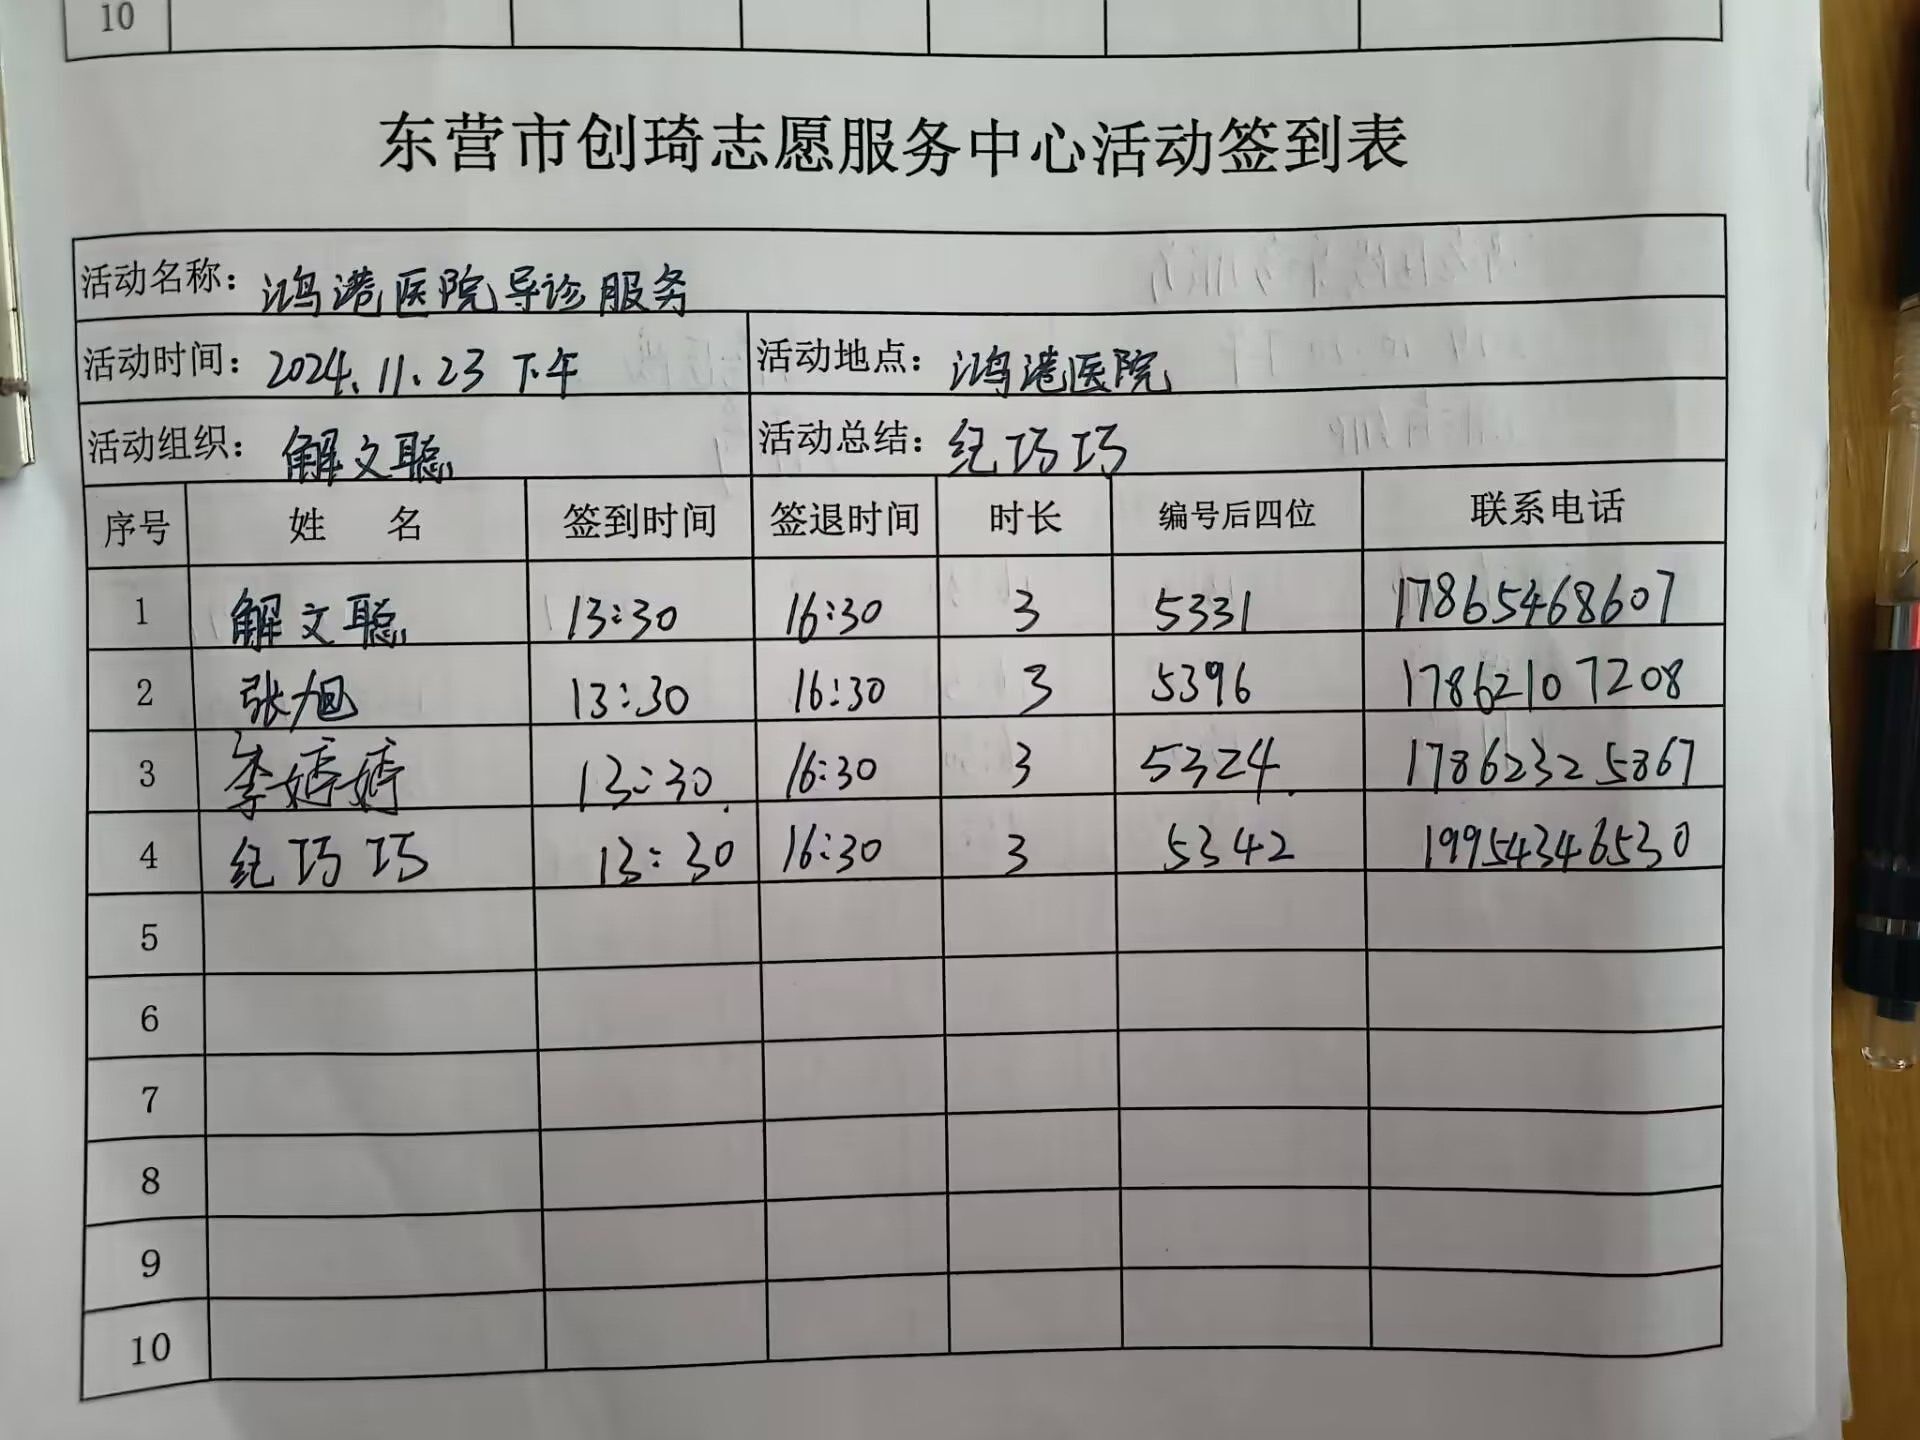 10
东营市创琦志愿服务中心活动签到表
活动名称：鸿港医院导诊服务
活动时间：2024.11.23 下午 活动地点：鸿港医院
活动组织：解文聪 活动总结：纪巧巧
序号 姓 名 签到时间 签退时间 时长 编号后四位 联系电话
1 解文聪 13:30 16:30 3 5331 17865468607
2 张旭 13:30 16:30 3 5396 17862107208
3 李婷婷 13:30 16:30 3 5324 17862325867
4 纪巧巧 13:30 16:30 3 5342 19954346530
5
6
7
8
9
10